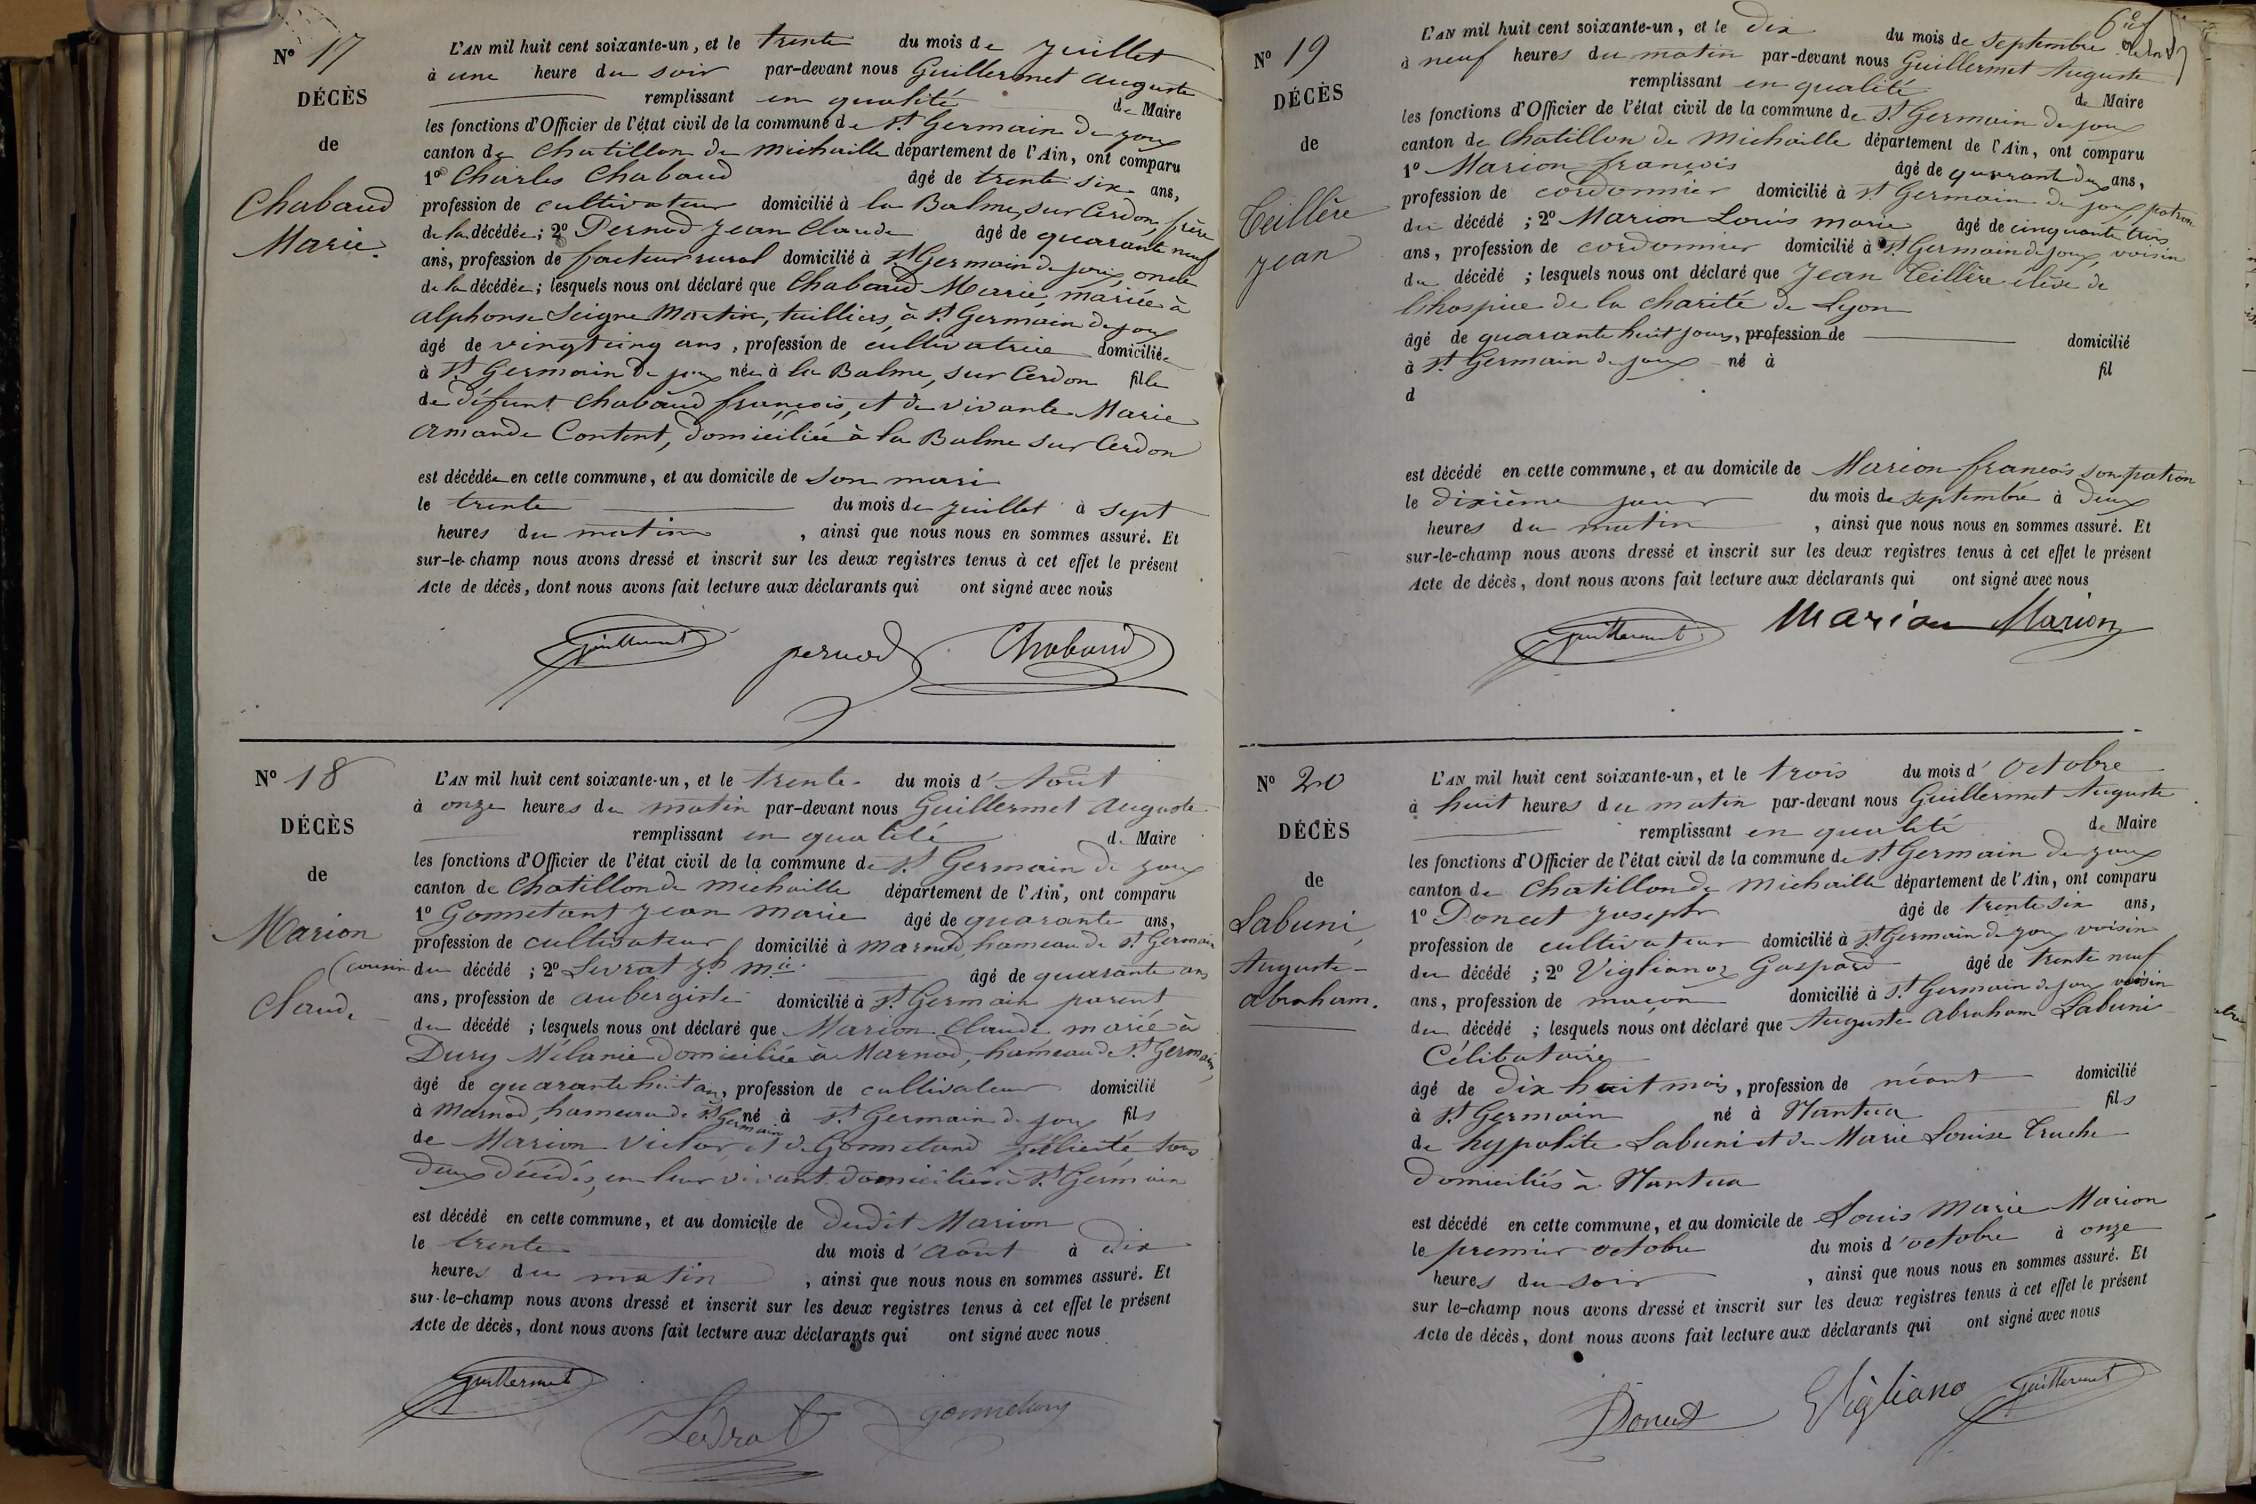 N° 17
DÉCÈS
de
Chabaud
Marie.
L'AN mil huit cent soixante-un, et le trente du mois de Juillet
à une heure du soir par-devant nous Guillermet Auguste
remplissant en qualité de Maire
les fonctions d'Officier de l'état civil de la commune de St Germain de joux
canton de Chatillon de michaille département de l'Ain, ont comparu
1° Charles Chabaud âgé de trente six ans,
profession de cultivateur domicilié à la Balme sur Cerdon, frère
de la décédée; 2° Pernod Jean Claude âgé de quarante neuf
ans, profession de facteur rural domicilié à St Germain de joux, oncle
de la décédée; lesquels nous ont déclaré que Chabaud Marie, mariée à
alphonse Seigne Martin, tuilliers, à St Germain de joux
âgé de vingt cinq ans, profession de cultivatrice domiciliée
à St Germain de joux née à la Balme, sur Cerdon fille
de défunt Chabaud françois, et de vivante Marie
Amande Content, domiciliée à la Balme sur Cerdon
est décédée en cette commune, et au domicile de son mari
le trente du mois de Juillet à sept
heures du matin, ainsi que nous nous en sommes assuré. Et
sur-le-champ nous avons dressé et inscrit sur les deux registres tenus à cet effet le présent
Acte de décès, dont nous avons fait lecture aux déclarants qui ont signé avec nous
Guillermet pernod Chabaud
N° 18
DÉCÈS
de
Marion
Claude
L'AN mil huit cent soixante-un, et le trente du mois d'Août
à onze heures du matin par-devant nous Guillermet Auguste
remplissant en qualité de Maire
les fonctions d'Officier de l'état civil de la commune de St Germain de joux
canton de Chatillon de michaille département de l'Ain, ont comparu
1° Gonnetant Jean Marie âgé de quarante ans,
profession de cultivateur domicilié à Marnod, hameau de St Germain
(cousin du décédé ; 2° Levrat Jh Mie âgé de quarante ans
ans, profession de aubergiste domicilié à St Germain parent
du décédé ; lesquels nous ont déclaré que Marion Claude marié à
Dury Mélanie domiciliée à Marnod, hameau de St Germain,
âgé de quarante huit ans, profession de cultivateur domicilié
à Marnod, hameau de St Germain né à St Germain de joux fils
de Marion Victor et de Gonnetand félicité tous
deux décédés, en leur vivant domiciliés à St Germain
est décédé en cette commune, et au domicile de dudit Marion
le trente du mois d'août à dix
heures du matin, ainsi que nous nous en sommes assuré. Et
sur-le-champ nous avons dressé et inscrit sur les deux registres tenus à cet effet le présent
Acte de décès, dont nous avons fait lecture aux déclarants qui ont signé avec nous
Guillermet Levrat gonnetant
6e
N° 19
DÉCÈS
de
Teillère
Jean
L'AN mil huit cent soixante-un, et le dix du mois de Septembre
à neuf heures du matin par-devant nous Guillermet Auguste
remplissant en qualité de Maire
les fonctions d'Officier de l'état civil de la commune de St Germain de joux
canton de Chatillon de Michaille département de l'Ain, ont comparu
1° Marion françois âgé de quarante deux ans,
profession de cordonnier domicilié à St Germain de joux, patron
du décédé ; 2° Marion Louis marie âgé de cinquante trois
ans, profession de cordonnier domicilié à St Germain de joux, voisin
du décédé ; lesquels nous ont déclaré que Jean Teillère élève de
l'hospice de la charité de Lyon
âgé de quarante huit jours, profession de domicilié
à St Germain de joux né à fil
d
est décédé en cette commune, et au domicile de Marion françois son patron
le dixième jour du mois de septembre à deux
heures du matin, ainsi que nous nous en sommes assuré. Et
sur-le-champ nous avons dressé et inscrit sur les deux registres tenus à cet effet le présent
Acte de décès, dont nous avons fait lecture aux déclarants qui ont signé avec nous
Guillermet Marion Marion
N° 20
DÉCÈS
de
Labuni,
Auguste-
Abraham.
L'AN mil huit cent soixante-un, et le trois du mois d'Octobre
à huit heures du matin par-devant nous Guillermet Auguste
remplissant en qualité de Maire
les fonctions d'Officier de l'état civil de la commune de St Germain de joux
canton de Chatillon de Michaille département de l'Ain, ont comparu
1° Poncet Joseph âgé de trente six ans,
profession de cultivateur domicilié à St Germain de joux voisin
du décédé ; 2° Viglianoz Gaspard âgé de trente neuf
ans, profession de maçon domicilié à St Germain de joux voisin
du décédé ; lesquels nous ont déclaré que Auguste Abraham Labuni
Célibataire
âgé de dix huit mois, profession de néant domicilié
à St Germain né à Nantua fils
de hypolite Labuni et de Marie Louise Truche
domiciliés à Nantua
est décédé en cette commune, et au domicile de Louis Marie Marion
le premier octobre du mois d'octobre à onze
heures du soir, ainsi que nous nous en sommes assuré. Et
sur le-champ nous avons dressé et inscrit sur les deux registres tenus à cet effet le présent
Acte de décès, dont nous avons fait lecture aux déclarants qui ont signé avec nous
Poncet Vigliano Guillermet